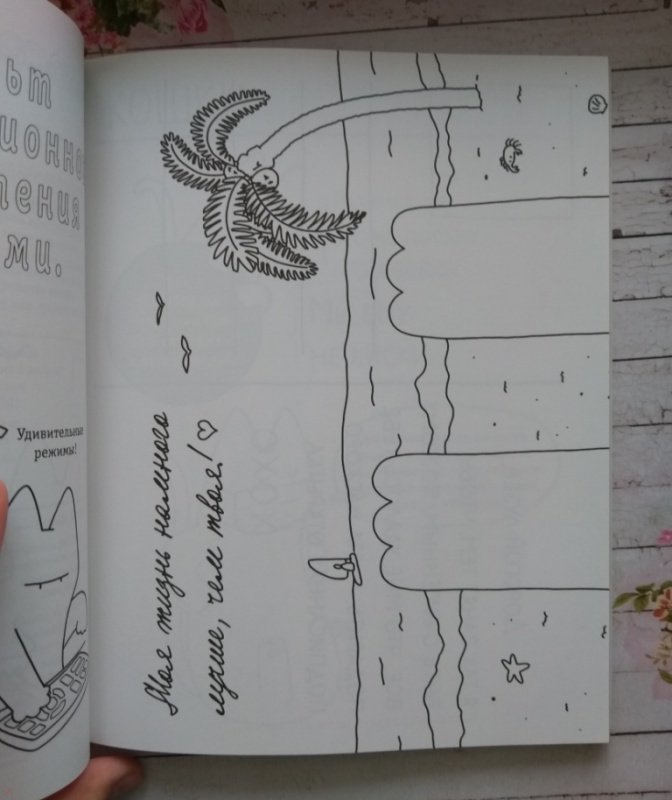 ьт
ионно
ления
ми.
Удивительные
режимы!
Моя жизнь намного
лучше, чем твоя!♡